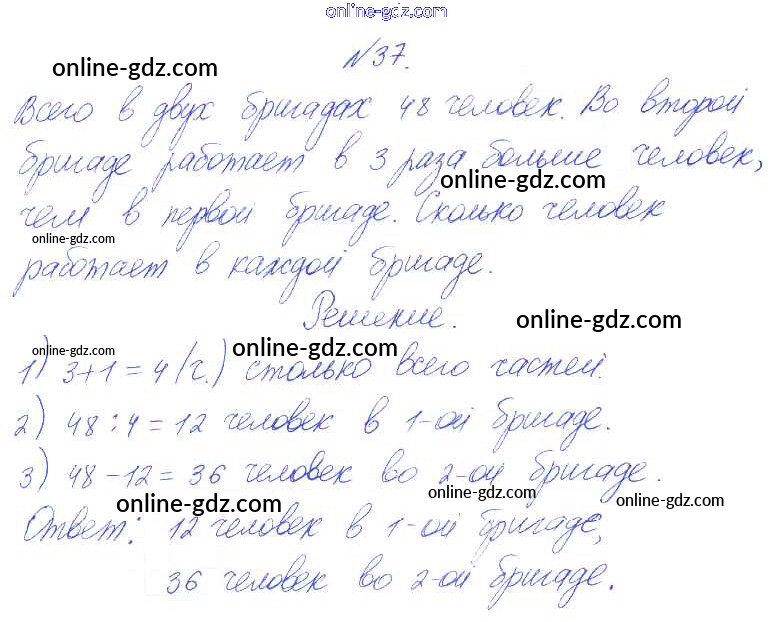 online-gdz.com
№37.
online-gdz.com
Всего в двух бригадах 48 человек. Во второй
бригаде работает в 3 раза больше человек,
online-gdz.com
чем в первой бригаде. Сколько человек
online-gdz.com
работает в каждой бригаде.
Решение.
online-gdz.com
online-gdz.com
online-gdz.com
1) 3+1=4 (ч.) столько всего частей.
2) 48:4=12 человек в 1-ой бригаде.
3) 48-12=36 человек во 2-ой бригаде.
online-gdz.com
online-gdz.com
online-gdz.com
Ответ: 12 человек в 1-ой бригаде,
36 человек во 2-ой бригаде.